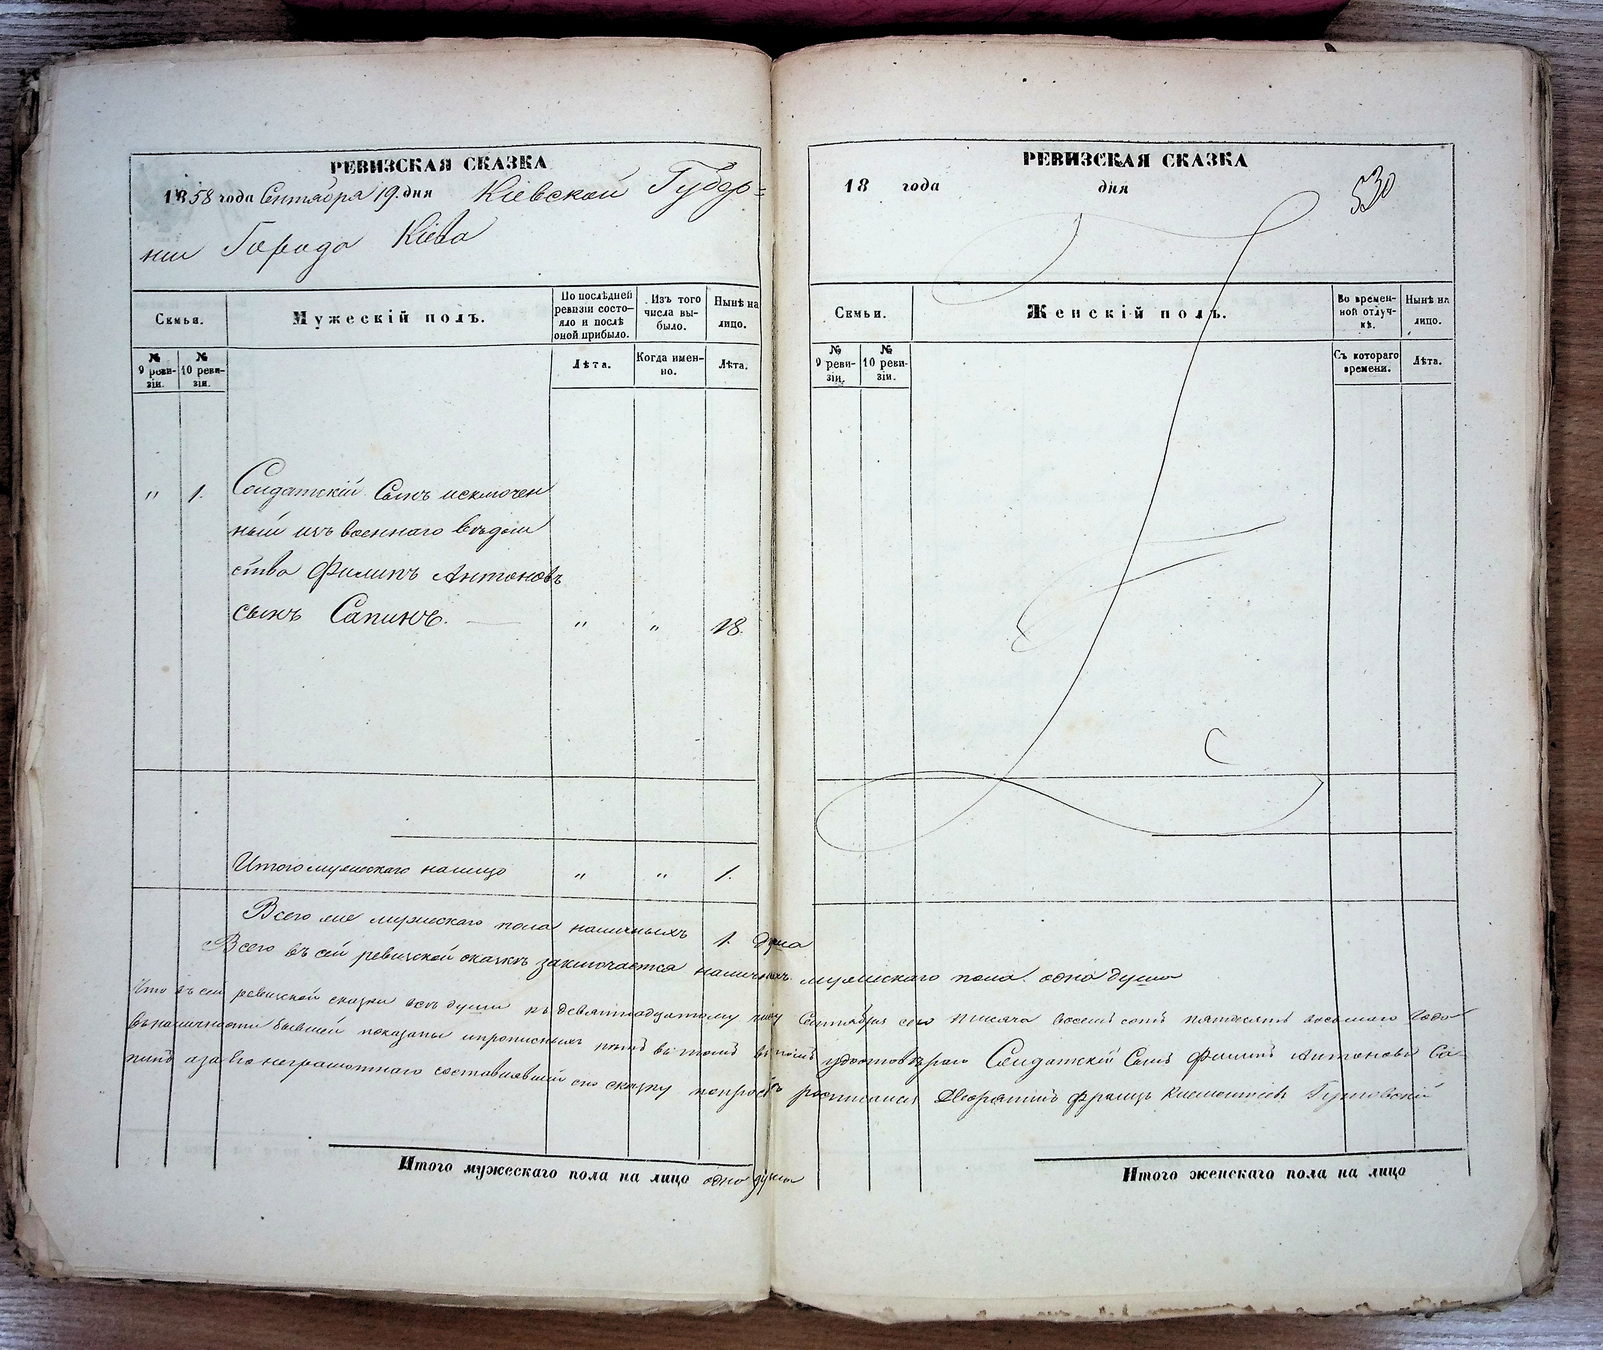 РЕВИЗСКАЯ СКАЗКА
1858 года Сентября 19. дня Кіевской Губер=
ніи Города Кіева
Семьи.
Мужескій полъ.
По послѣдней ревизіи состояло и послѣ оной прибыло.
Изъ того числа выбыло.
Нынѣ на лицо.
№ 9 ревизіи.
№ 10 ревизіи.
Лѣта.
Когда именно.
Лѣта.
" 1. Солдатскій Сынъ исключен
ный изъ военнаго вѣдом
ства Филипъ Антоновъ
сынъ Сапинъ. — " " 18.
Итого мужескаго налицо " " 1.
Всего же мужескаго пола наличныхъ 1. душа
Всего въ сей ревизской сказкѣ заключается наличныхъ мужескаго пола одна душа
Что въ сей ревизской сказки всѣ души къ девятнадцатому числу Сентября сего тысяча восемь сотъ пятдесятъ восьмаго года
въ наличности бывшей показаны въ томъ удостовѣряю Солдатскій Сынъ Филипъ Антоновъ Са-
пинъ а за его неграмотнаго составившій сію сказку росписался Дворянинъ Францъ Гутовскій
Итого мужескаго пола на лицо одна душа
РЕВИЗСКАЯ СКАЗКА
18 года дня
530
Семьи.
Женскій полъ.
Во временной отлучкѣ.
Нынѣ на лицо.
№ 9 ревизіи.
№ 10 ревизіи.
Съ котораго времени.
Лѣта.
Итого женскаго пола на лицо